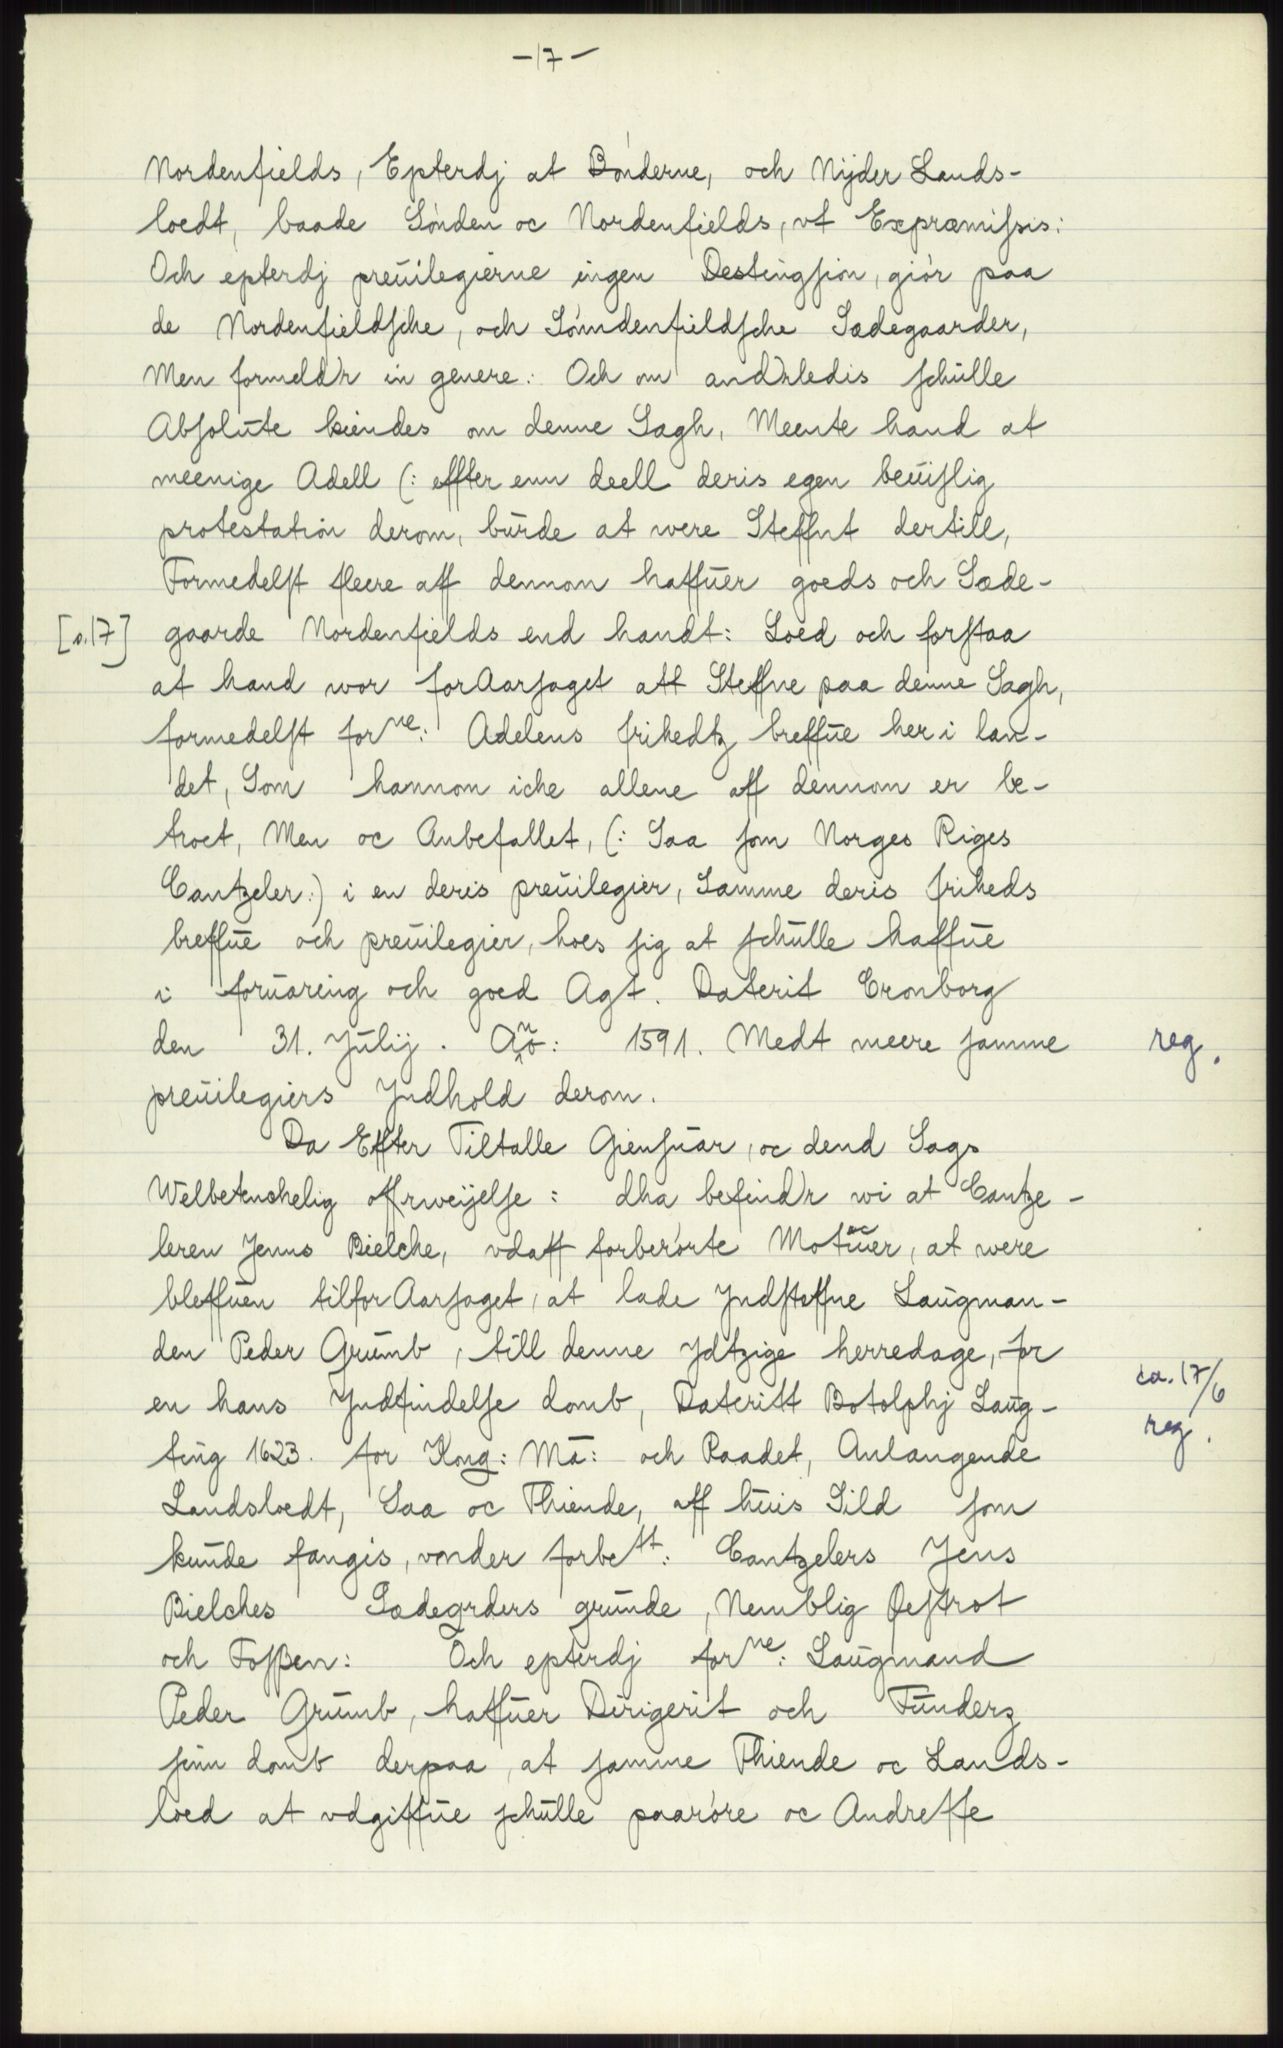 -17-
Nordenfields, Epterdj at Bónderne, och Nijder Lands-
loedt, baade Sónden oc Nordenfields, vt Expræmissis:
Och epterdj preuilegierne ingen Destingsion, giór paa
de Nordenfieldsche, och Sómdenfieldsche Sædegaarder,
Men formeld'r in genere: Och om and'rledis schulle
Absolute kiendes om denne Sagh, Meente hand at
meenige Adell (: effter enn deell deris egen beuislig
protestation derom, burde at were Steffnt dertill,
Formedelst fleere aff dennom haffuer goeds och Sæde-
[s.17] gaarde Nordenfields end handt: Loed och forstaa
at hand wor forAarsaget att Steffne paa denne Sagh,
formedelst forne: Adelens frihedtz breffue her i lan-
det, Som hannom iche allene aff dennom er be-
troet, Men oc Anbefallet, (: Saa som Norges Riges
Cantzeler:) i en deris preuilegier, Samme deris friheds
breffue och preuilegier, hoes sig at schulle haffue
i foruaring och goed Agt. Daterit Cronborg
den 31. Julij. Año: 1591. Medt meere samme reg.
preuilegiers Yndhold derom.
Da Effter Tiltalle Giensuar, oc dend Sags
Welbetenchelig offrweijelse: dha befind'r wi at Cantze-
leren Jenns Bielche, vdaff forberórte Motiuer, at were
bleffuen tilforAarsaget, at lade Yndsteffne Laugman-
den Peder Grumb, till denne Ydtzige herredage, for
en hans Yndfindelse domb, Dateritt Botolphj Laug- ca. 17/6
ting 1623. for Kong: Ma: och Raadet, Anlangende reg.
Landsloedt, Saa oc Thiende, aff huis Sild som
kunde fangis, vonder forbett: Cantzelers Jens
Bielches Sædegrders grunde, Nemblig Østrot
och Fossen: Och epterdj forne: Laugmand
Peder Grumb, haffuer Dirigerit och Funderz
sinn domb derpaa, at samme Thiende oc Lands-
loed at vdgiffue schulle paaróre oc Andreffe